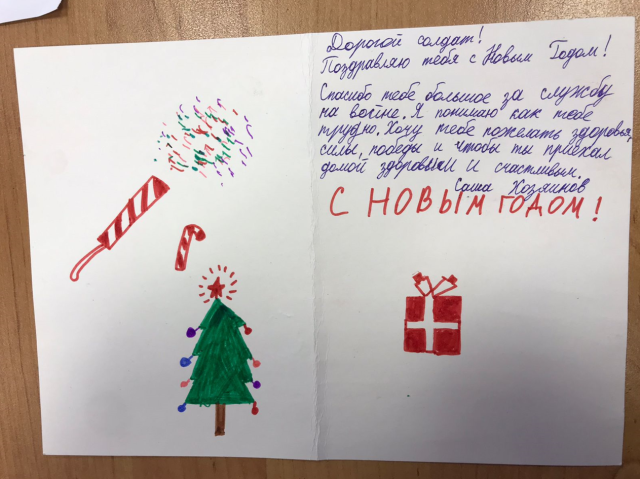 Дорогой солдат!
Поздравляю тебя с Новым Годом!
Спасибо тебе большое за службу
на войне. Я понимаю как тебе
трудно. Хочу тебе пожелать здоровья,
силы, победы и чтобы ты приехал
домой здоровым и счастливым.
Саша Хозяинов
С НОВЫМ ГОДОМ!